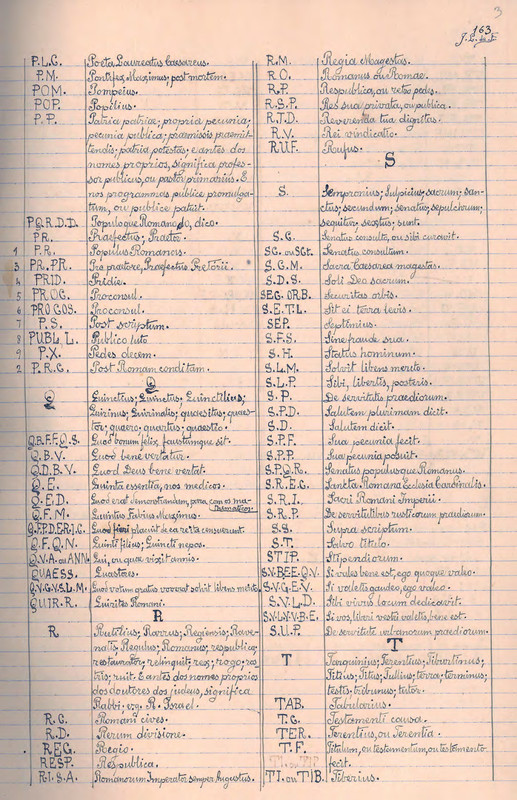 3
163
P.L.C. Poeta Laureatus Caesareus.
P.M. Pontifex Maximus; post mortem.
POM. Pompeius.
POP. Popilius.
P.P. Patria patriae; propria pecunia;
pecunia publica; praemissis praemit-
tendis; patria potestas; e antes dos
nomes proprios, significa profes-
sor publicus, ou pastor primarius. E
nos programmas publice promulga-
tum, ou publice patuit.
P.Q.R.D.D. Populoque Romano, dico.
PR. Praefectus; Praetor.
1 P.R. Populus Romanus.
3 PR.PR. Pro praetore, Praefectus Pretorii.
4 PRID. Pridie.
5 PROC. Proconsul.
6 PROCOS. Proconsul.
7 P.S. Post scriptum.
8 PUBL.L. Publico luto
9 P.X. Pedes decem.
2 P.R.C. Post Romam conditam.
Q
Q Quinctus; Quinctus; Quinctilius;
Quirinus; Quirinalis; quaesitus; quaes-
tor; quaero; quartus; quaestio.
Q.B.F.F.Q.S. Quod bonum felix faustumque sit.
Q.B.V. Quod bene vertatur.
Q.D.B.V. Quod Deus bene vertat.
Q.E. Quinta essentia, nos medicos.
Q.E.D. Quod erat demonstrandum, para com os ma-
thematicos.
Q.F.M. Quintus Fabius Maximus.
Quod fieri placuit de ea re ita censuerunt.
Q.F.Q.N. Quinti filius; Quincti nepos.
Q.V.A. ou ANN. Qui, ou quae vixit annis.
QUAESS. Quaestores.
Q.V.G.V.S.L.M. Quod votum gratis voverat solvit libens merito.
QUIR.R. Quirites Romani.
R
R Rutilius; Rarrus; Regiensis; Rave-
natis; Regulus; Romanus; respublica;
restaurator; relinquit; rex; rogo; ros-
tris; ruit. E antes dos nomes proprios
dos doutores dos judeus, significa
Rabbi; e.g. R. Israel.
R.C. Romani cives.
R.D. Rerum divisione.
REG. Regio.
RESP. Respublica.
R.I.S.A. Romanorum Imperator semper Augustus.
R.M. Regia Magestas.
R.O. Romanus ou Romae.
R.P. Respublica, ou retro pedes.
R.S.P. Res sua privata, ou publica.
R.T.D. Reverenda tua dignitas.
R.V. Rei vindicatio.
RUF. Rufus.
S
S. Sempronius; Sulpicius; sacrum; san-
ctus; secundum; senatus; sepulchrum;
sequitur; sextus; sunt.
S.C. Senatus consulto, ou sibi curavit.
SC. ou SCt. Senatus consultum.
S.C.M. Sacra Caesarea magestas.
S.D.S. Soli Deo sacrum.
SEC. ORB. Securitas orbis.
S.E.T.L. Sit ei terra levis.
SEP. Septimius.
S.F.S. Sine fraude sua.
S.H. Status hominum.
S.L.M. Solvit libens merito.
S.L.P. Sibi, libertis, posteris.
S.P. De servitute praediorum.
S.P.D. Salutem plurimam dicit.
S.D. Salutem dicit.
S.P.F. Sua pecunia fecit.
S.P.P. Sua pecunia posuit.
S.P.Q.R. Senatus populusque Romanus.
S.R.E.C. Sancta Romana Ecclesia Cardinalis.
S.R.I. Sacri Romani Imperii.
S.R.P. De servitutibus rusticorum praedium.
S.S. Supra scriptum.
S.T. Salvo titulo.
STIP. Stipendiorum.
S.V.B.E.E.Q.V. Si vales bene est; ego quoque valeo.
S.V.G.E.V. Si valetis gaudeo, ego valeo.
S.V.L.D. Sibi vivus locum dedicavit.
S.V.L.V.V.B.E. Si vos, liberi vestri valetis, bene est.
S.U.P. De servitute urbanorum praediorum.
T
T Tarquinius; Terentius; Tiburtinus;
Titius; Titus; Tullius; terra; terminus;
testis; tribunus; tutor.
TAB. Tabularius.
T.C. Testamenti causa.
TER. Terentius, ou Terentia.
T.F. Titulum, ou testamentum, ou testamento
fecit.
TI. ou TIB. Tiberius.